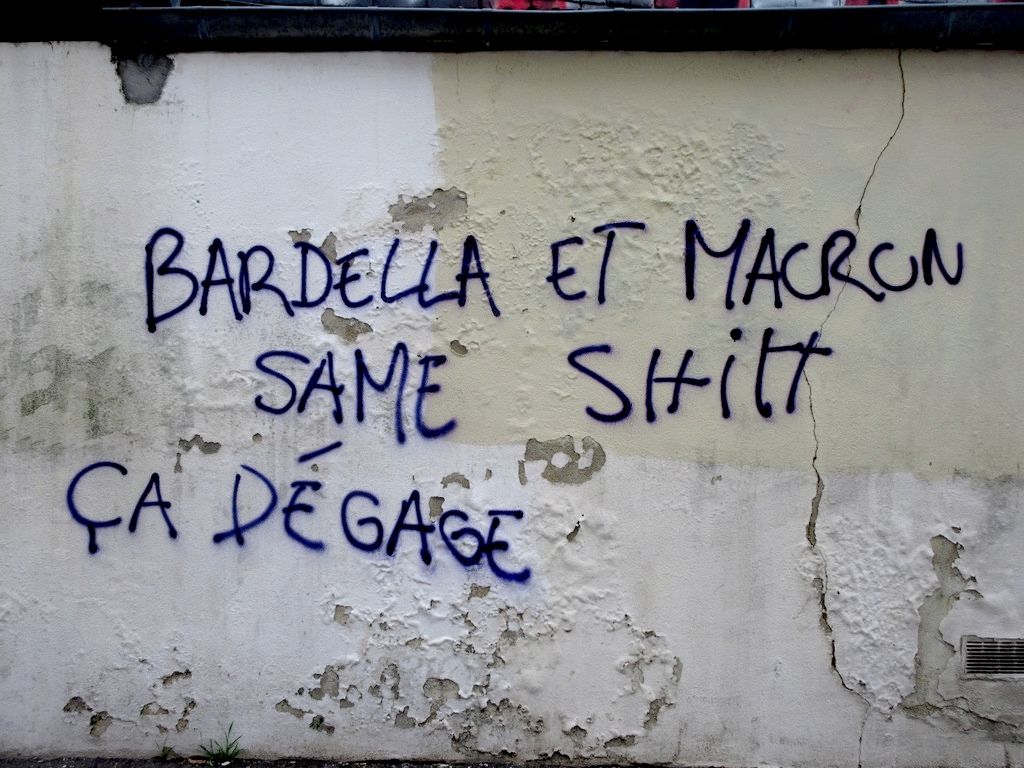 BARDELLA ET MACRON
SAME SHitt
ÇA DÉGAGE